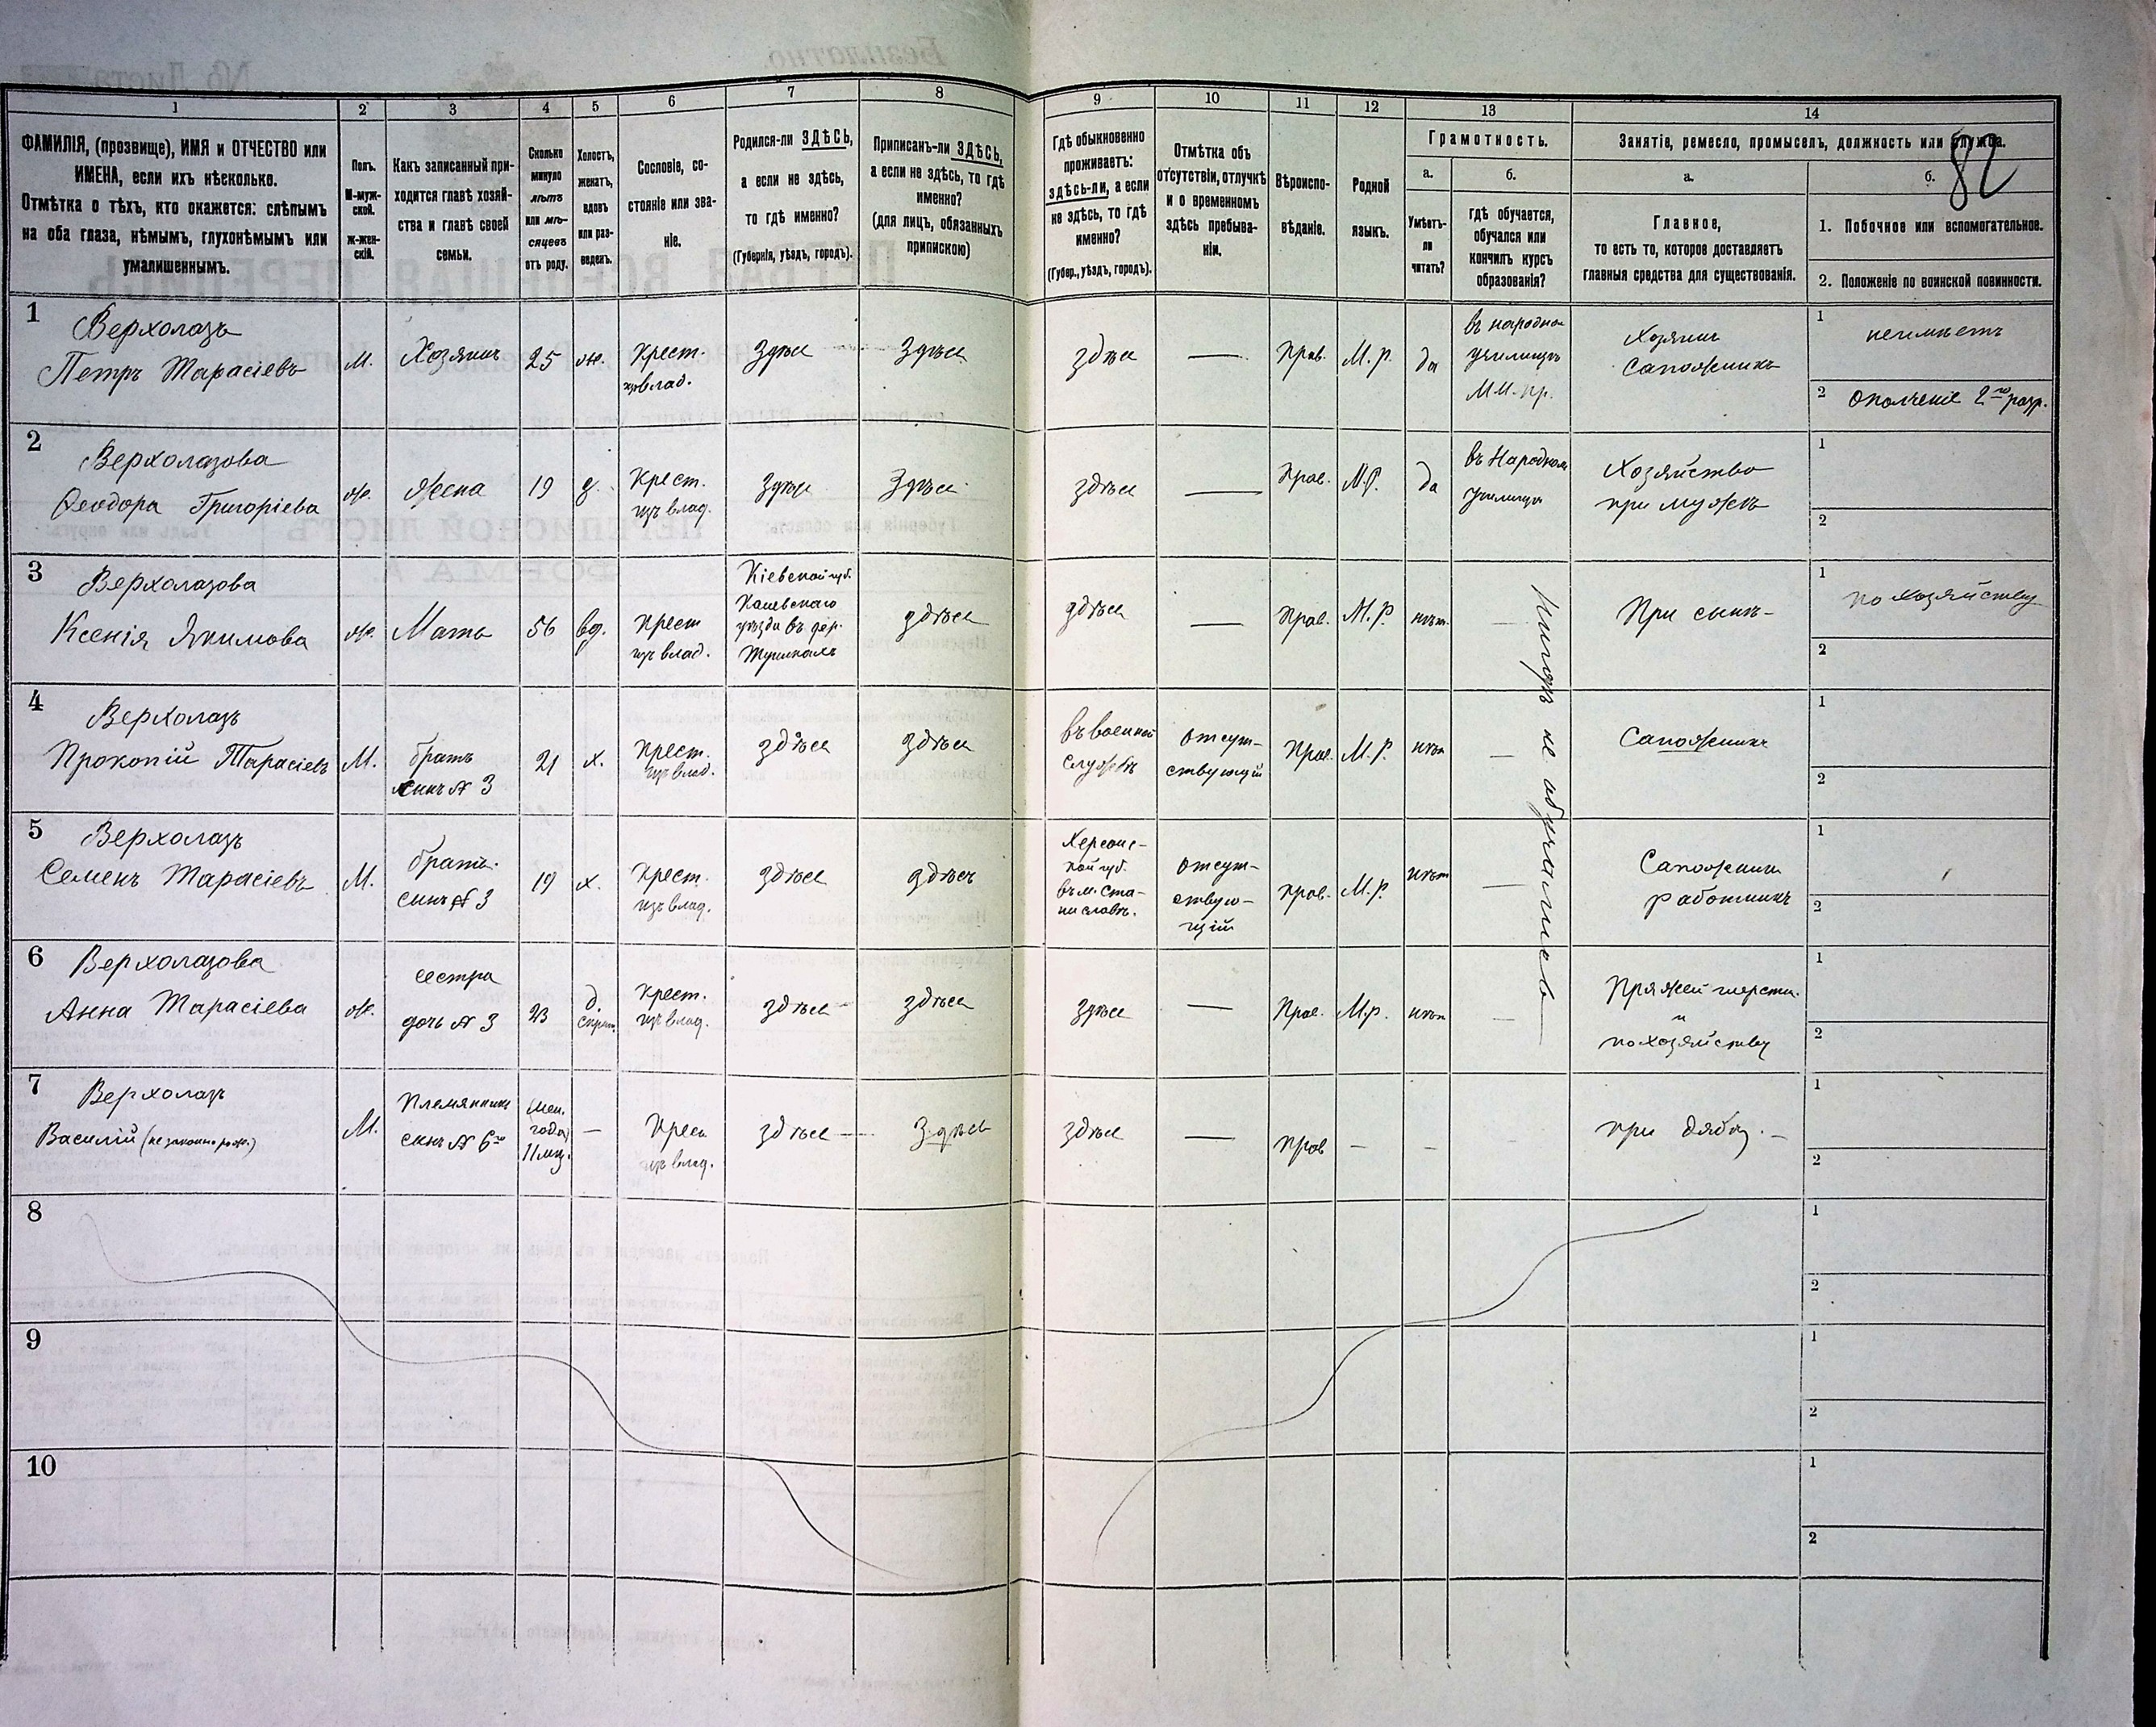 1
2
3
4
5
6
7
8
9
10
11
12
13
14
82
ФАМИЛІЯ, (прозвище), ИМЯ и ОТЧЕСТВО или
ИМЕНА, если ихъ нѣсколько.
Отмѣтка о тѣхъ, кто окажется: слѣпымъ
на оба глаза, нѣмымъ, глухонѣмымъ или
умалишеннымъ.
Полъ.
М-муж-
ской.
Ж-жен-
скій.
Какъ записанный при-
ходится главѣ хозяй-
ства и главѣ своей
семьи.
Сколько
минуло
лѣтъ
или мѣ-
сяцевъ
отъ роду.
Холостъ,
женатъ,
вдовъ
или раз-
веденъ.
Сословіе, со-
стояніе или зва-
ніе.
Родился-ли ЗДѢСЬ,
а если не здѣсь,
то гдѣ именно?
(Губернія, уѣздъ, городъ).
Приписанъ-ли ЗДѢСЬ,
а если не здѣсь, то гдѣ
именно?
(для лицъ, обязанныхъ
припискою)
Гдѣ обыкновенно
проживаетъ:
здѣсь-ли, а если
не здѣсь, то гдѣ
именно?
(Губер., уѣздъ, городъ).
Отмѣтка объ
отсутствіи, отлучкѣ
и о временномъ
здѣсь пребыва-
ніи.
Вѣроиспо-
вѣданіе.
Родной
языкъ.
Грамотность.
а.
Умѣетъ-
ли
читать?
б.
гдѣ обучается,
обучался или
кончилъ курсъ
образованія?
Занятіе, ремесло, промыселъ, должность или служба.
а.
Главное,
то есть то, которое доставляетъ
главныя средства для существованія.
б.
1. Побочное или вспомогательное.
2. Положеніе по воинской повинности.
1
Верхолазъ
Петръ Тарасіевъ
М.
Хозяинъ
25
ж.
Крест.
изъ влад.
Здѣсь
Здѣсь
здѣсь
—
Прав.
М. р.
да
въ народно
училищѣ
М.н. пр.
Хозяинъ
Сапожникъ
1
неимѣетъ
2
Ополченіе 2го разр.
2
Верхолазова
Ѳеодора Григоріева
ж.
Жена
19
з.
Крест.
изъ влад.
Здѣсь
Здѣсь
здѣсь
—
Прав.
М.р.
да
въ Народном
училищѣ
Хозяйство
при мужѣ
1
2
3
Верхолазова
Ксенія Якимова
ж.
Мать
56
вд.
Крест
изъ влад.
Кіевской губ.
Каневскаго
уѣзда въ дер.
здѣсь
здѣсь
—
Прав.
М. р
нѣт.
—
При сынѣ-
1
по хозяйству
2
Нигдѣ не обучались
4
Верхолазъ
Прокопій Тарасіевъ
М.
братъ
сынъ № 3
21
х.
Крест.
изъ влад.
здѣсь
здѣсь
въ военной
службѣ
Отсут-
ствующій
Прав.
М. р.
нѣт
—
Сапожникъ
1
2
5
Верхолазъ
Семенъ Тарасіевъ
М.
братъ.
сынъ № 3
19
х.
Крест.
изъ влад.
здѣсь
здѣсь
Херсонс-
кой губ.
въ м. Ста-
ниславѣ.
Отсут-
ствую-
щій
Прав.
М. р.
нѣт
—
Сапожникъ
работникъ
1
2
6
Верхолазова
Анна Тарасіева
ж.
сестра
дочь № 3
23
д.
Крест.
изъ влад.
здѣсь
здѣсь
здѣсь
—
Прав.
М.р.
нѣт
—
Пряжей шерсти.
и
по хозяйству
1
2
7
Верхолазъ
Василій (незаконно рож.)
М.
Племянникъ
сынъ № 6го
мен.
года
11 мѣс.
—
Крес.
изъ влад.
здѣсь
Здѣсь
здѣсь
—
прав
—
—
при дядѣ. —
1
2
8
1
2
9
1
2
10
1
2